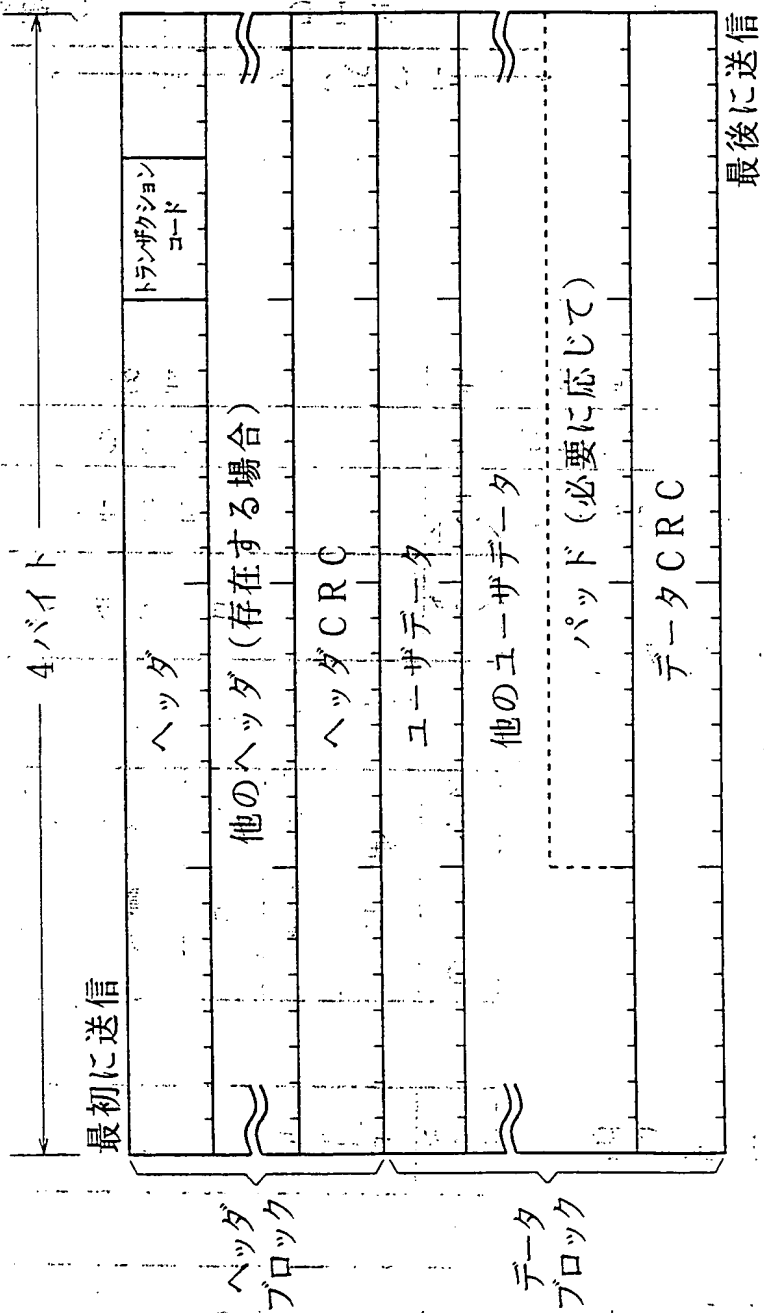 4バイト
最初に送信
ヘッダ
トランザクション
コード
他のヘッダ (存在する場合)
ヘッダCRC
ユーザデータ
他のユーザデータ
パッド (必要に応じて)
データCRC
ヘッダ
ブロック
データ
ブロック
最後に送信